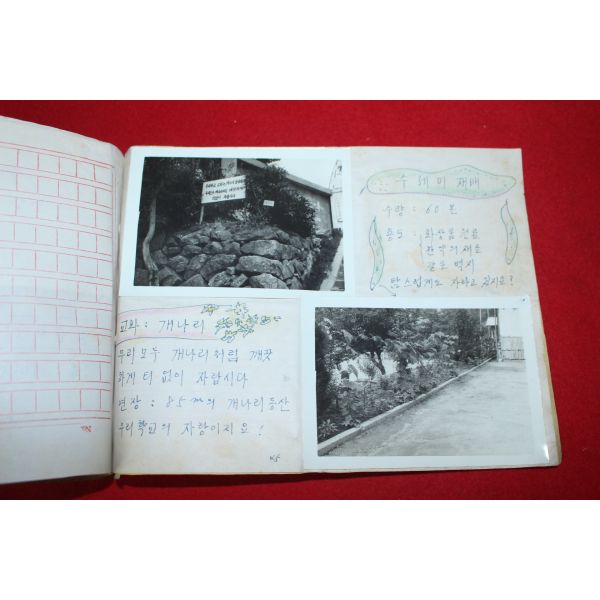 수세미 재배
수량 : 60 본
용도 : 화장품 원료
한약의 재료
탐스럽게도 자라고 있지요?
교화 : 개나리
우리 모두 개나리처럼 깨끗
하게 티 없이 자랍시다
연장 : 85m의 개나리 동산
우리 학교의 자랑이지요!